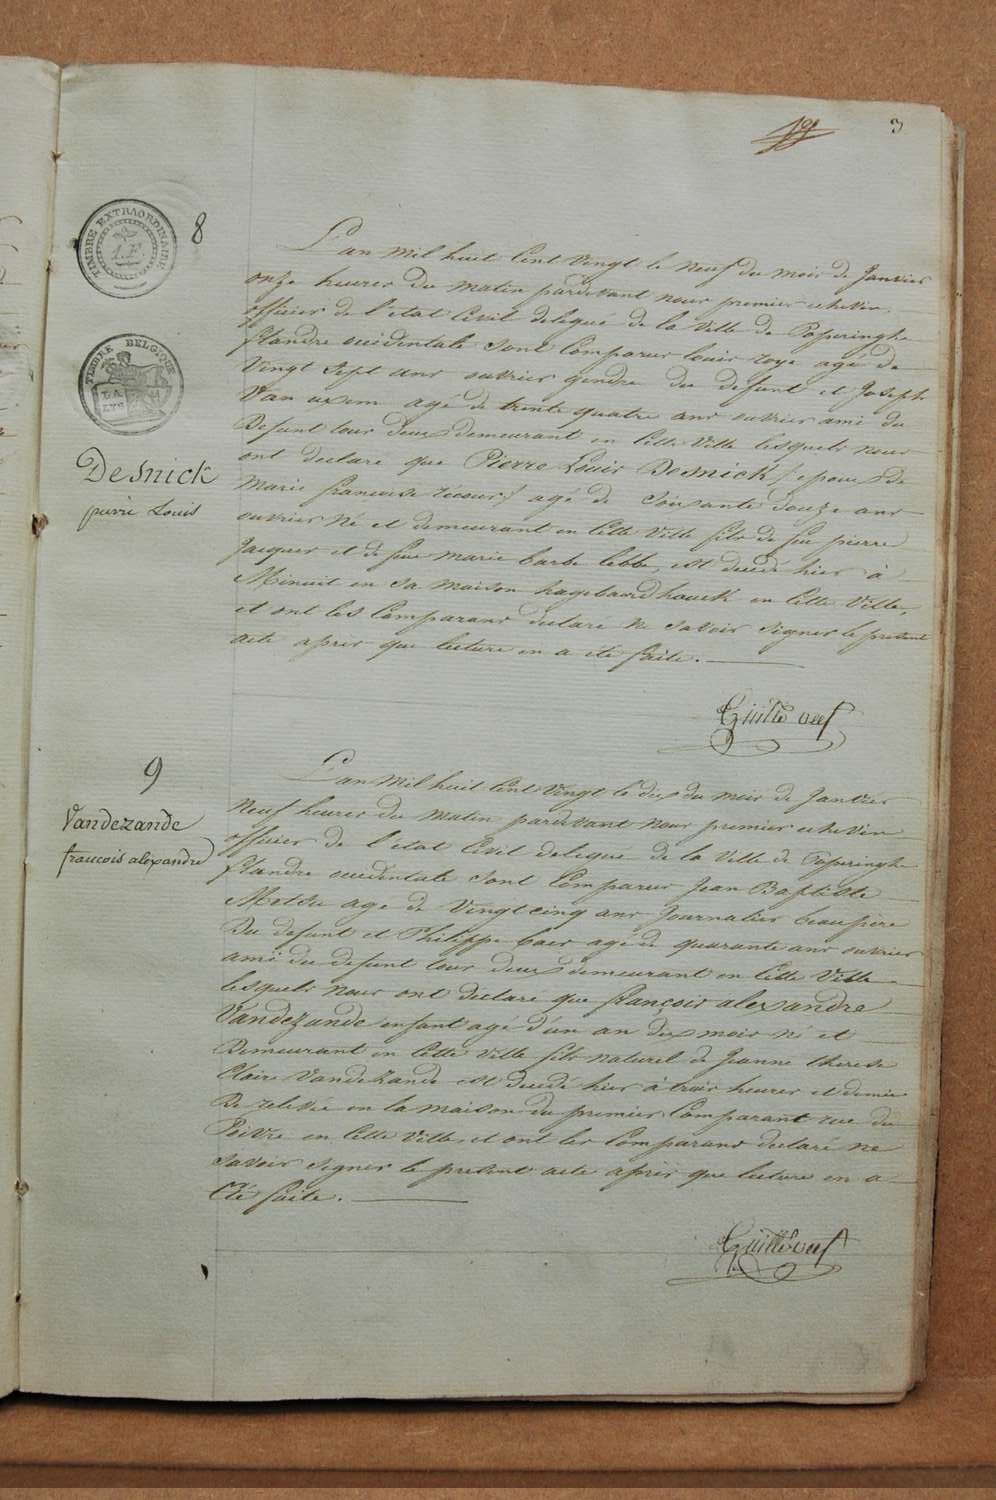 3
TIMBRE EXTRAORDINAIRE
8
TIMBRE BELGIQUE
LA
LYS
Desnick
pierre Louis
L'an mil huit Cent Vingt le neuf du mois de Janvier
onze heures du matin pardevant nous premier echevin
officier de l'etat Civil delegué de la Ville de Poperinghe
flandre occidentale sont Comparus louis roye agé de
Vingt sept ans ouvrier gendre du defunt et Joseph
Van uxem agé de trente quatre ans ouvrier ami du
Defunt tous deux demeurant en Cette Ville lesquels nous
ont declaré que Pierre Louis Desnick / epoux de
Marie francoise recour / agé de Soixante douze ans
ouvrier né et demeurant en Cette Ville fils de feu pierre
Jacques et de feue marie barbe lebbe, est decedé hier à
Minuit en sa maison hagebaerdhouck en Cette Ville,
et ont les Comparans declaré ne savoir signer le present
acte après que lecture en a été faite.
9
Vandezande
francois alexandre
L'an mil huit Cent Vingt le dix du mois de Janvier
Neuf heures du Matin pardevant nous premier echevin
officier de l'etat Civil delegué de la Ville de Poperinghe
flandre occidentale sont Comparus Jean Baptiste
Metsu agé de Vingt cinq ans Journalier beaupère
Du defunt et Philippe baes agé de quarante ans ouvrier
ami du defunt tous deux demeurant en Cette Ville
lesquels nous ont declaré que françois alexandre
Vandezande enfant agé d'un an dix mois né et
Demeurant en Cette Ville fils naturel de Jeanne therese
Claire Vandezande est decedé hier à trois heures et demie
De relevée en la maison du premier Comparant rue du
Poivre en Cette Ville, et ont les Comparans declaré ne
savoir signer le present acte après que lecture en a
été faite.